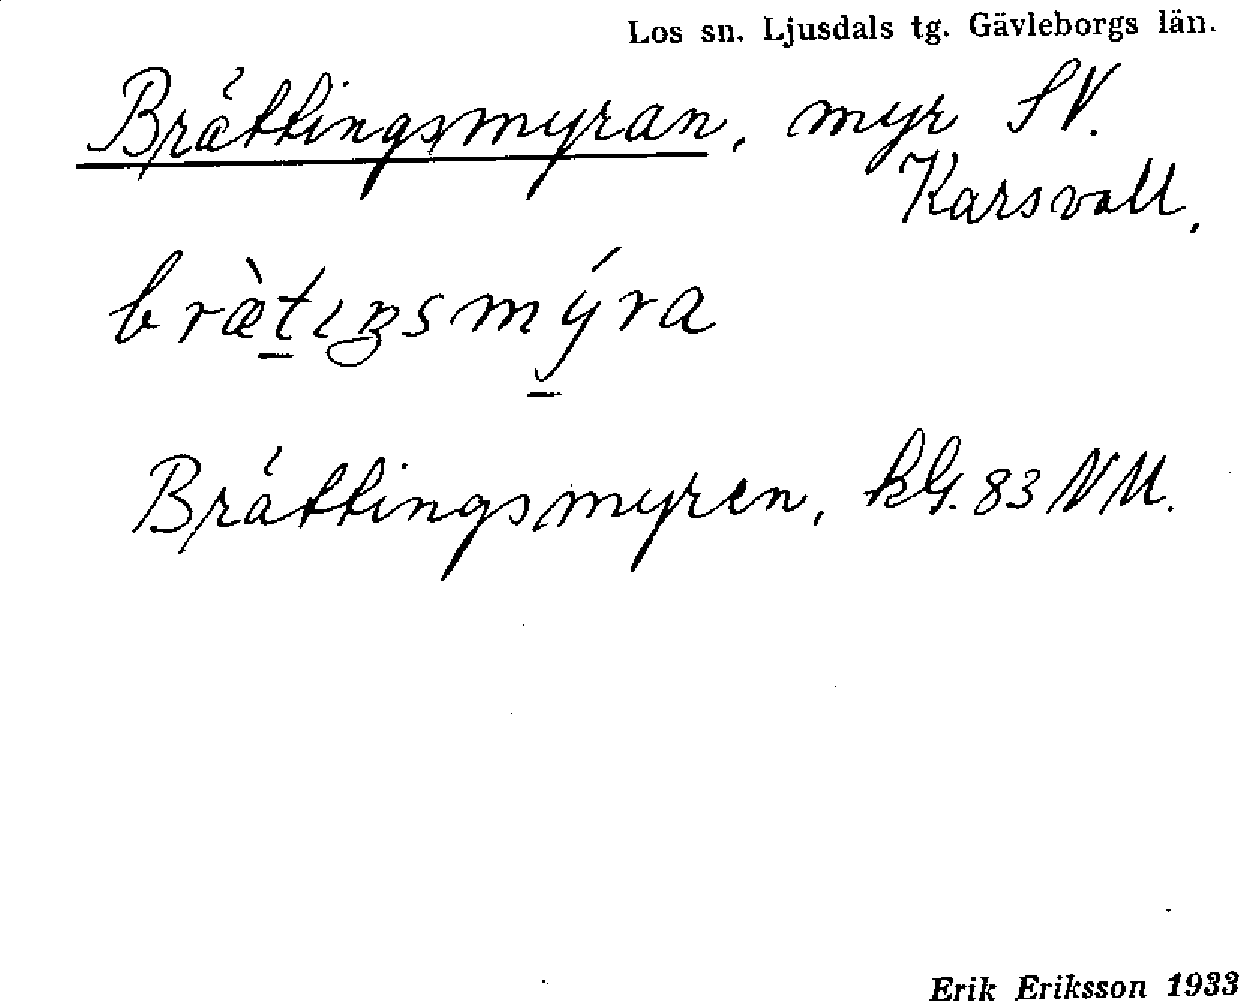 Los sn. Ljusdals tg. Gävleborgs län.
Brättingsmyran, myr SV.
Karsvall.
bræ̀tıŋsmýra
Brättingsmyren, kG. 83 NM.
Erik Eriksson 1933